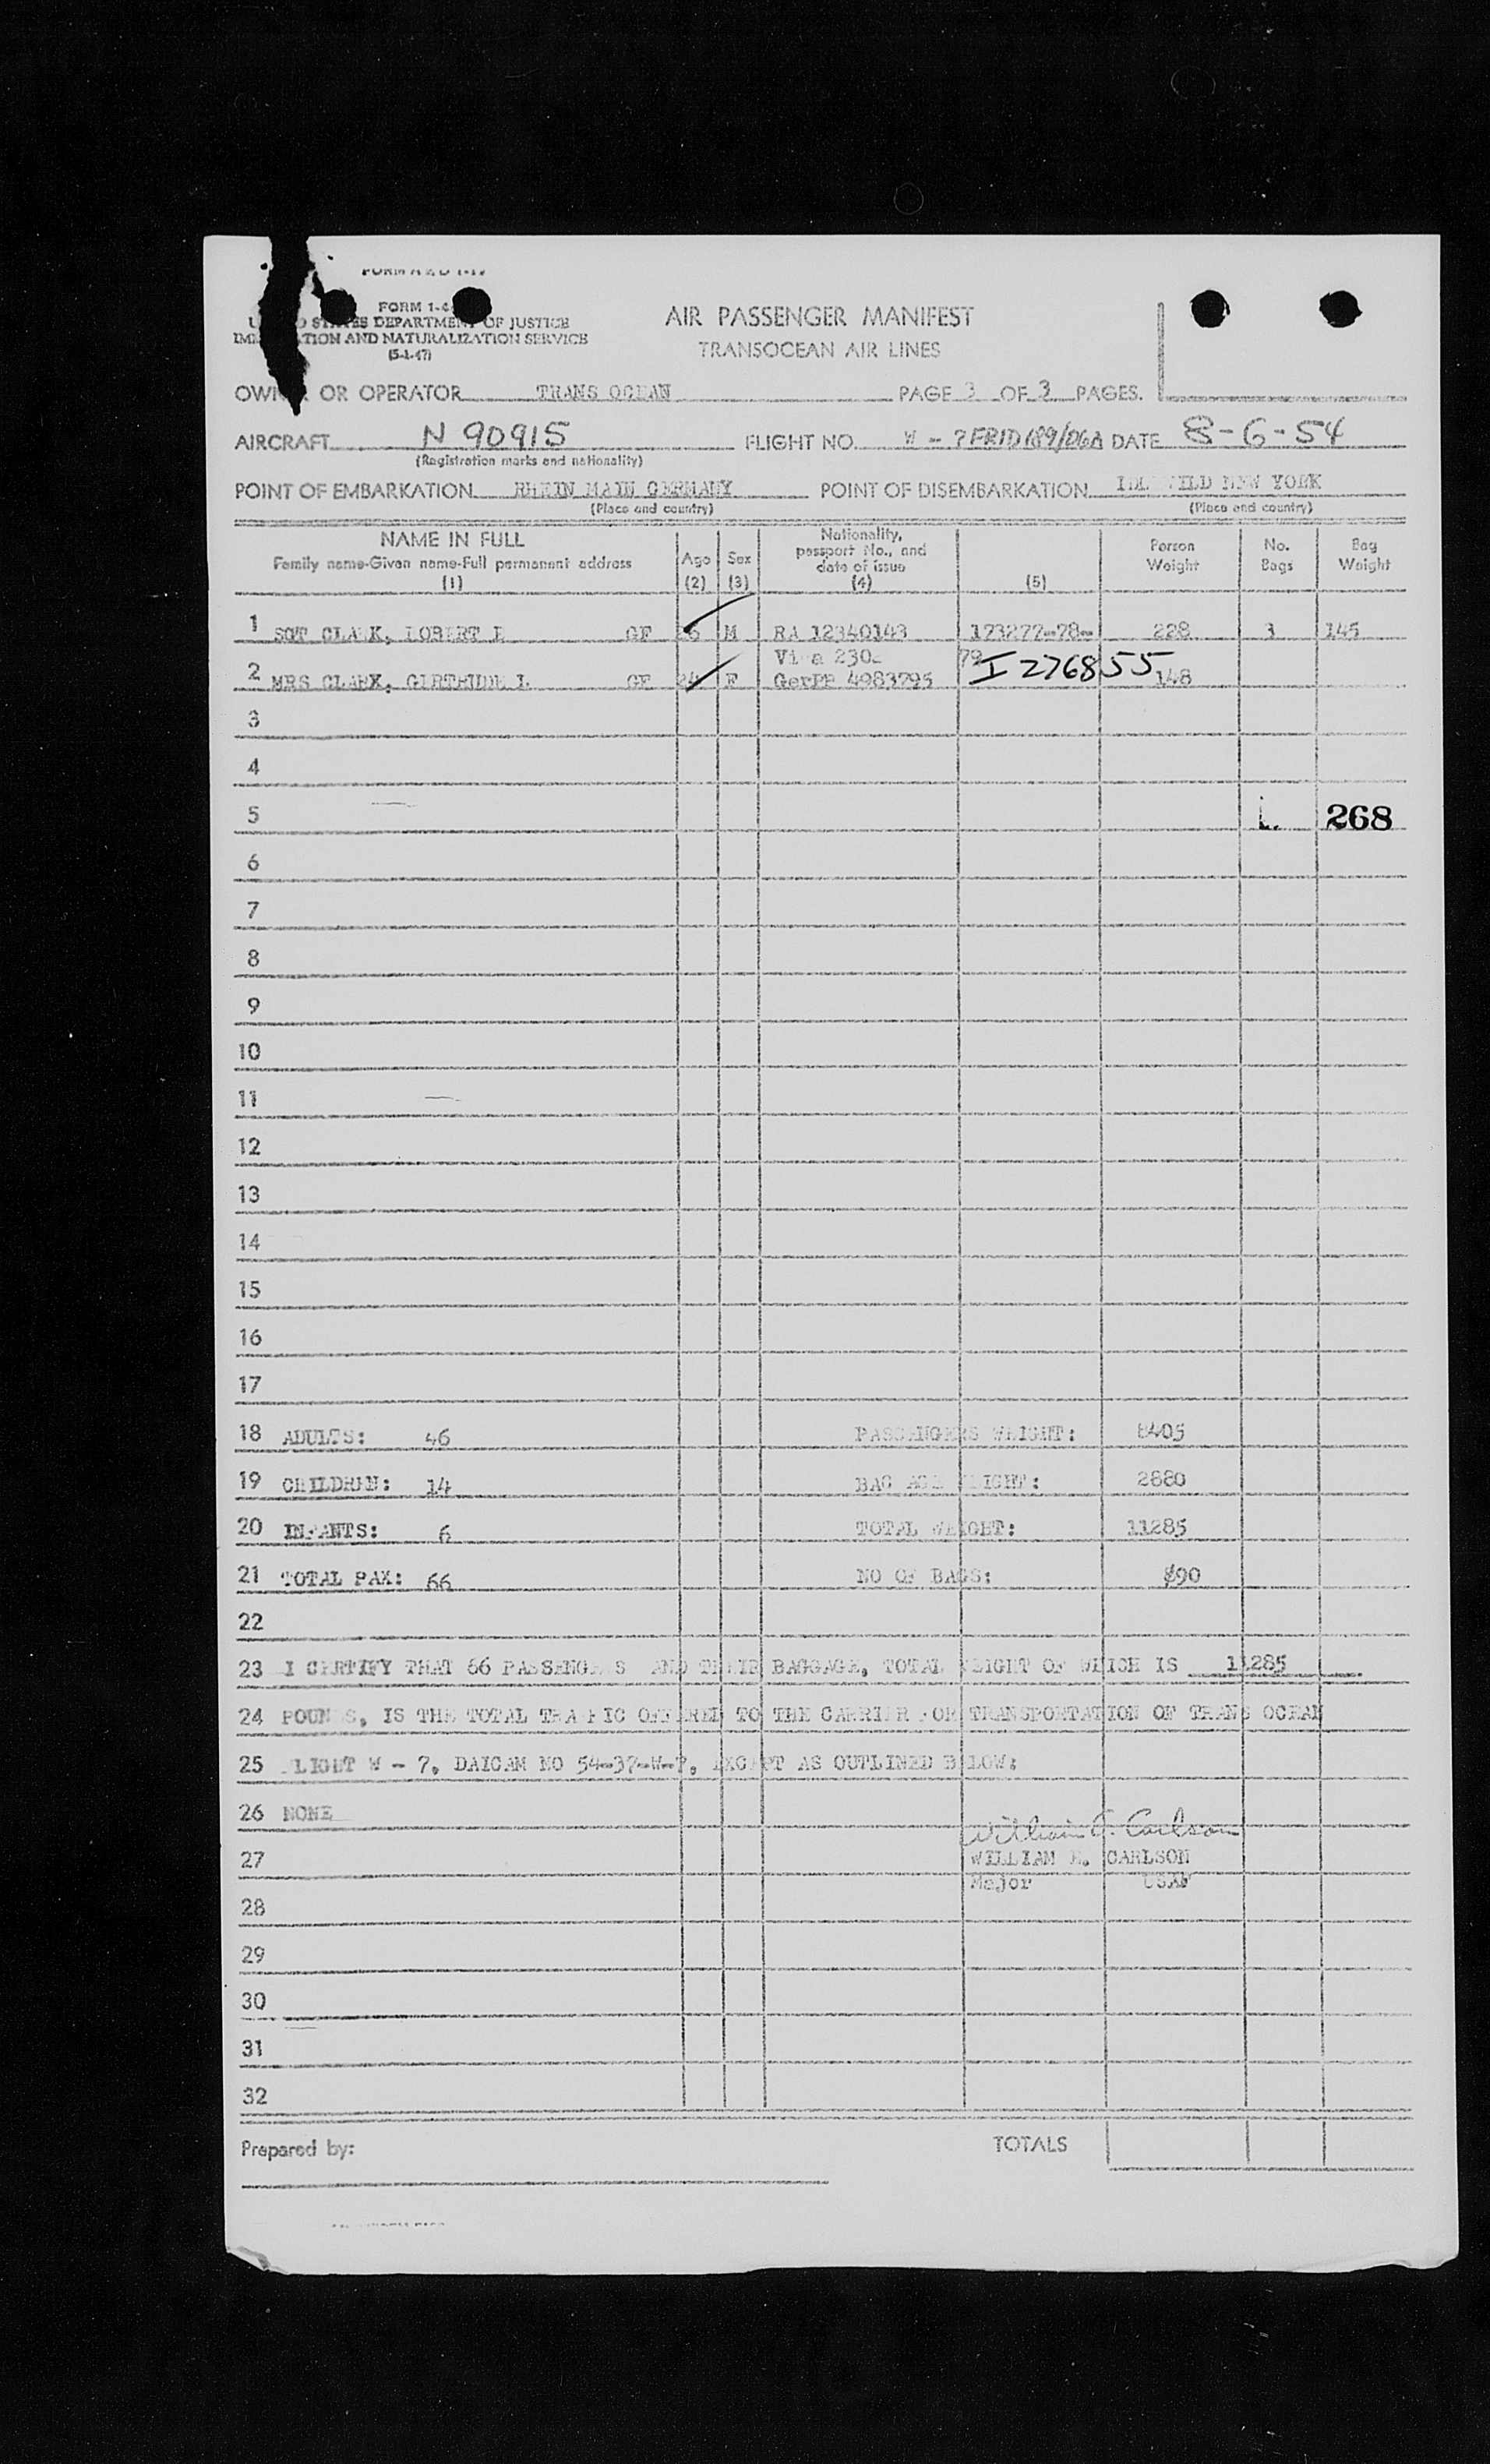 FORM 1-4
STATES DEPARTMENT OF JUSTICE
AND NATURALIZATION SERVICE
(5-1-47)
AIR PASSENGER MANIFEST
TRANSOCEAN AIR LINES
OR OPERATOR TRANS OCEAN PAGE 3 OF 3 PAGES.
AIRCRAFT N 90915 FLIGHT NO. W - 7 DATE 8-6-54
(Registration marks and nationality)
POINT OF EMBARKATION RHEIN MAIN GERMANY POINT OF DISEMBARKATION NEW YORK
(Place and country) (Place and country)
NAME IN FULL
Family name-Given name-Full permanent address
(1)
Age
(2)
Sex
(3)
Nationality, passport No., and date of issue
(4)
(5)
Person Weight
No. Bags
Bag Weight
1 SGT CLARK, ROBERT M RA 12340143 173277-78- 228 3 145
79
2 MRS CLARK, GERTRUDE F GerPP 4983795 I 276855 148
3
4
5 268
6
7
8
9
10
11
12
13
14
15
16
17
18 ADULTS: 46 PASSENGERS WEIGHT: 8405
19 CHILDREN: 14 WEIGHT: 2880
20 INFANTS: 6 TOTAL WEIGHT: 11285
21 TOTAL PAX: 66 NO OF BAGS: 90
22
23 I CERTIFY THAT 66 PASSENGERS AND THEIR BAGGAGE, TOTAL WEIGHT OF WHICH IS 11285
24 POUNDS, IS THE TOTAL TRAFFIC OFFERED TO THE CARRIER FOR TRANSPORTATION OF TRANS OCEAN
25 FLIGHT W - 7, DAICAM NO 54-37-W-7, EXCEPT AS OUTLINED BELOW:
26 NONE
William E. Carlson
27 WILLIAM E. CARLSON
Major USAF
28
29
30
31
32
Prepared by: TOTALS